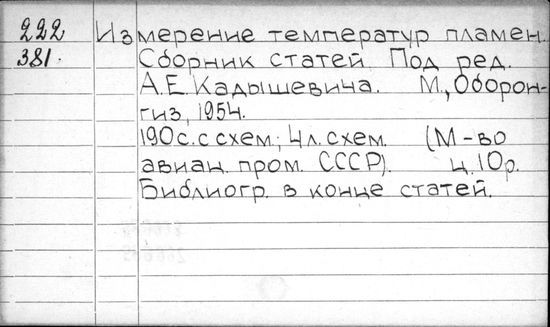 222 Измерение температур пламен.
381. Сборник статей. Под ред.
А.Е. Кадышевича. М., Оборон-
гиз, 1954.
190с. с схем; 4л. схем. (М-во
авиац. пром. СССР). ц. 10р.
Библиогр. в конце статей.